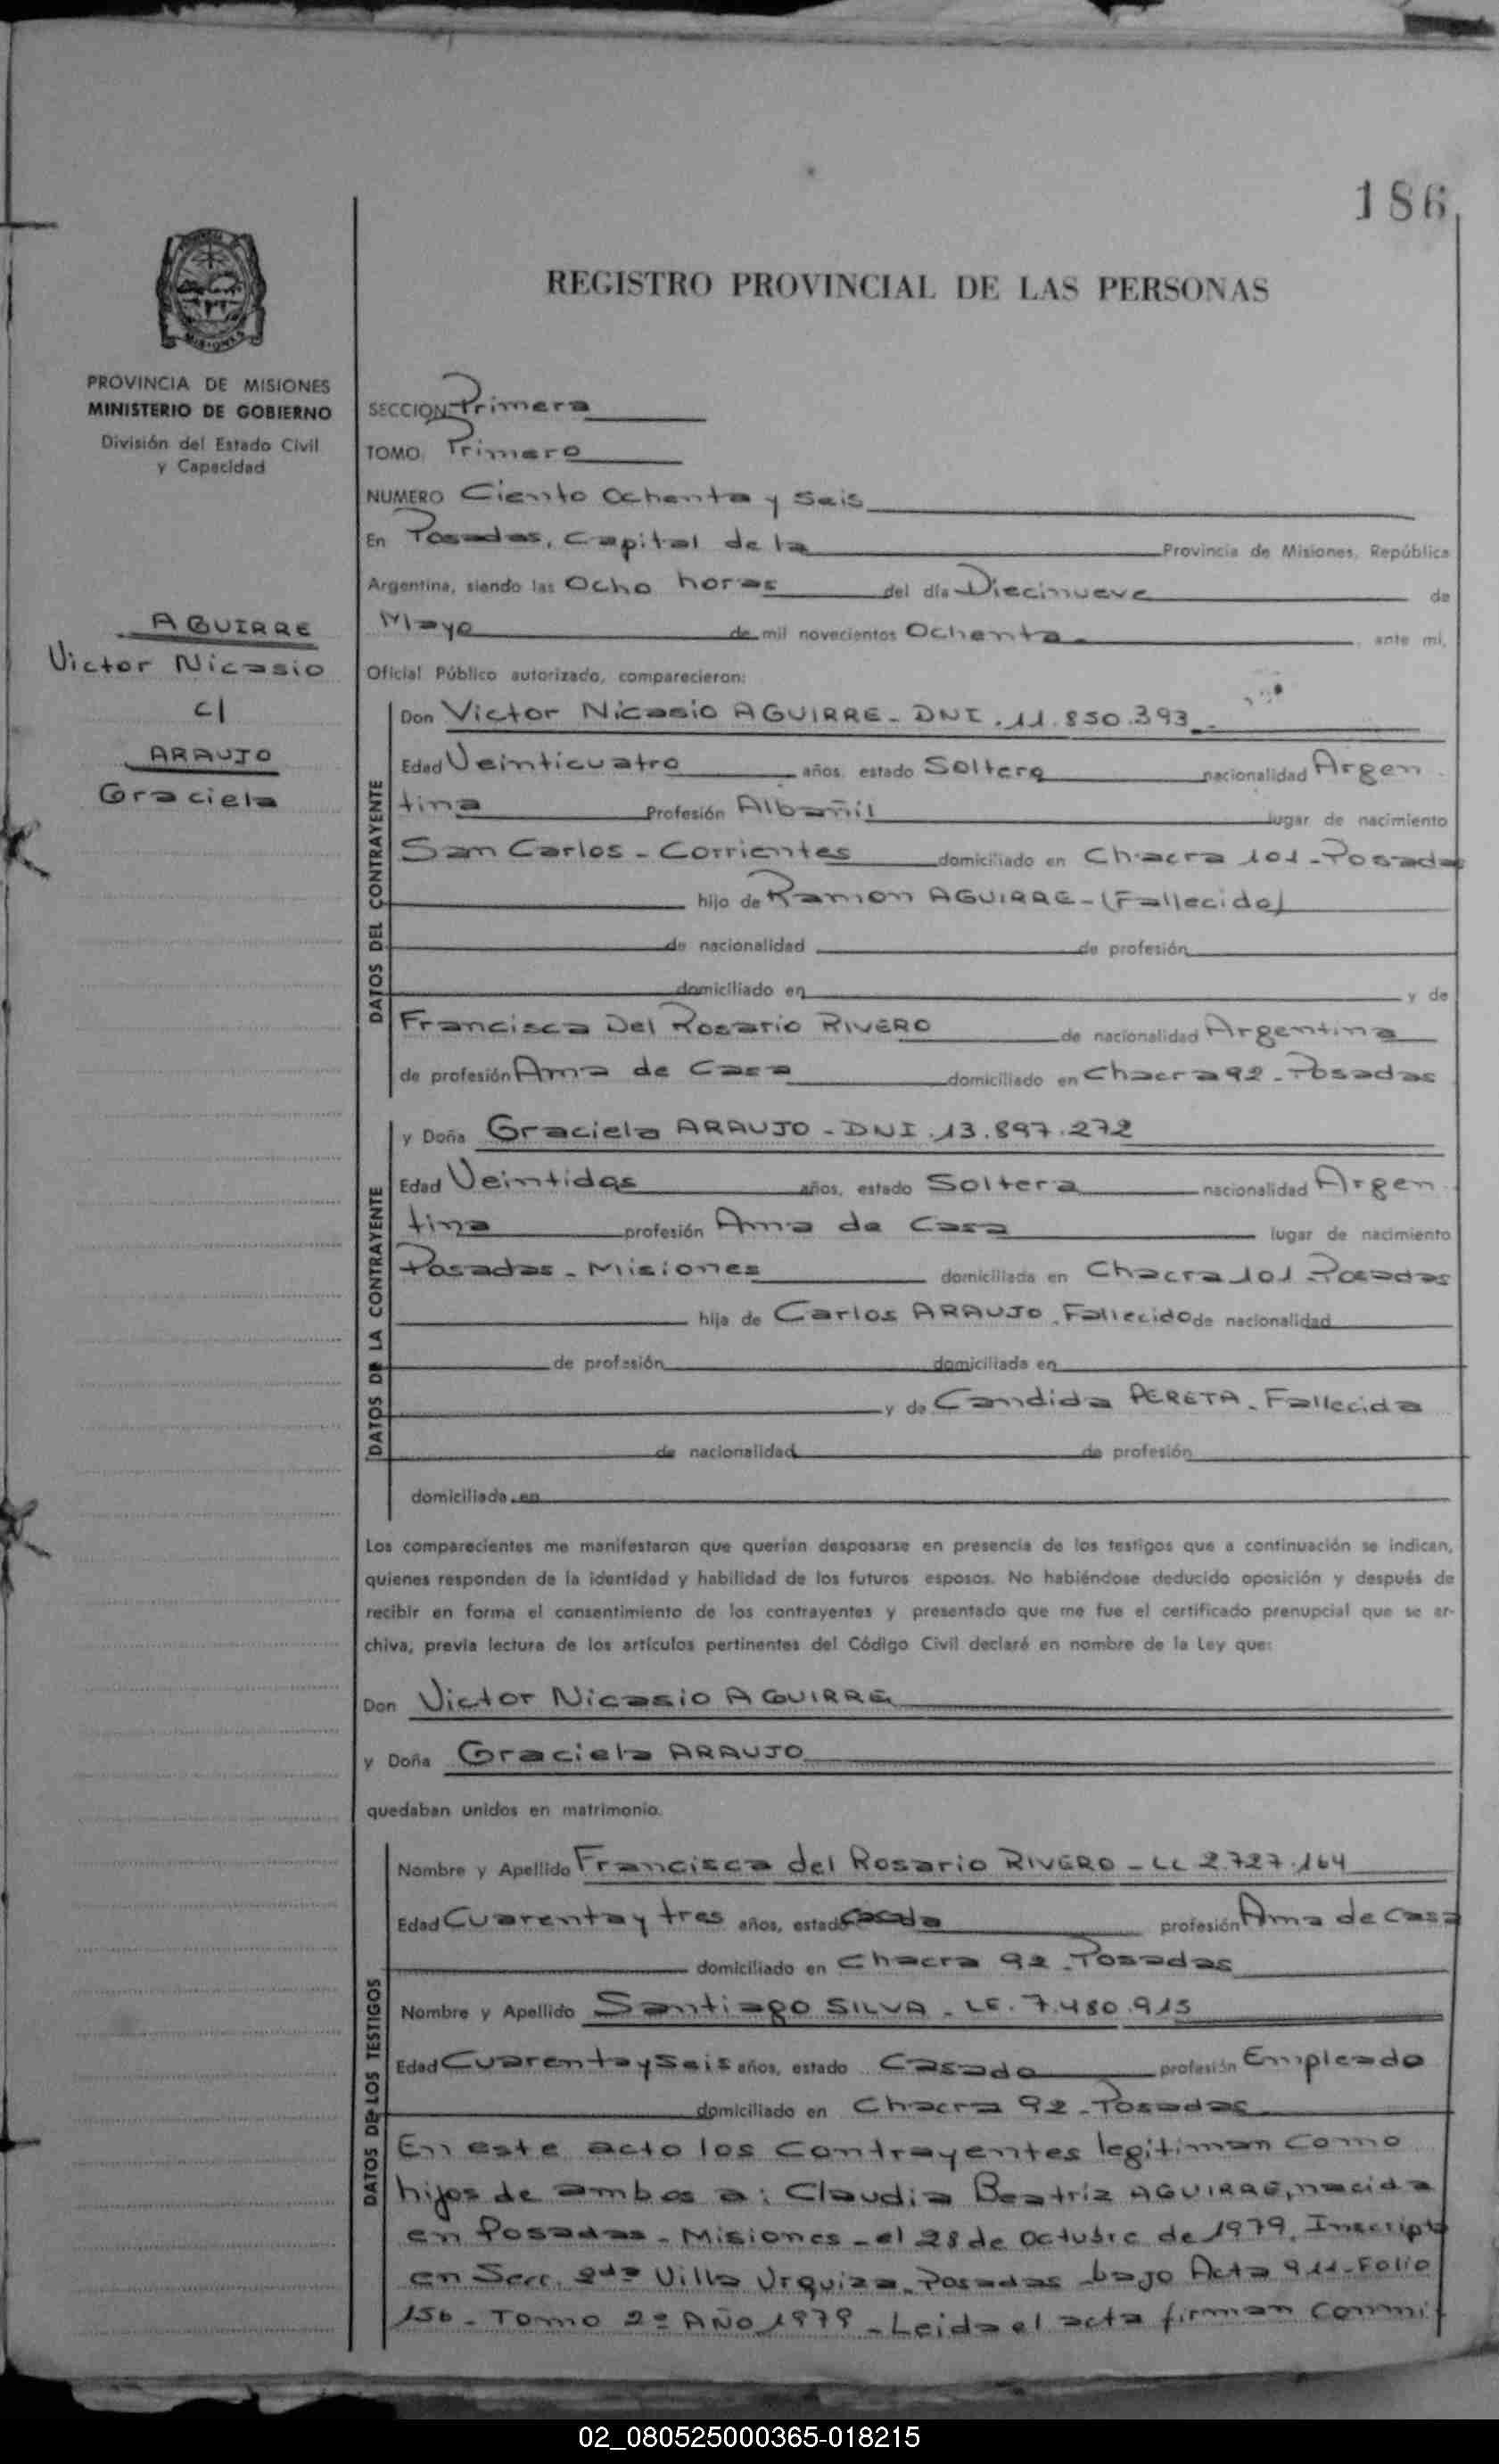 186
REGISTRO PROVINCIAL DE LAS PERSONAS
PROVINCIA DE MISIONES
MINISTERIO DE GOBIERNO
División del Estado Civil
y Capacidad
AGUIRRE
Victor Nicasio
c/
ARAUJO
Graciela
SECCION Primera
TOMO Primero
NUMERO Ciento Ochenta y Seis
En Posadas, Capital de la Provincia de Misiones, República
Argentina, siendo las Ocho horas del día Diecinueve de
Mayo de mil novecientos Ochenta. ante mí,
Oficial Público autorizado, comparecieron:
DATOS DEL CONTRAYENTE
Don Victor Nicasio AGUIRRE - DNI. 11.850.393.-
Edad Veinticuatro años, estado Soltero nacionalidad Argen
tina Profesión Albañil lugar de nacimiento
San Carlos - Corrientes domiciliado en Chacra 101 - Posadas
hijo de Ramon AGUIRRE - (Fallecido)
de nacionalidad de profesión
domiciliado en y de
Francisca Del Rosario RIVERO de nacionalidad Argentina
de profesión Ama de Casa domiciliado en Chacra 92 - Posadas
DATOS DE LA CONTRAYENTE
y Doña Graciela ARAUJO - DNI. 13.897.272
Edad Veintidos años, estado Soltera nacionalidad Argen
tina profesión Ama de Casa lugar de nacimiento
Posadas - Misiones domiciliada en Chacra 101 - Posadas
hija de Carlos ARAUJO - Fallecido de nacionalidad
de profesión domiciliada en
y de Candida PERETA - Fallecida
de nacionalidad de profesión
domiciliada en
Los comparecientes me manifestaron que querían desposarse en presencia de los testigos que a continuación se indican,
quienes responden de la identidad y habilidad de los futuros esposos. No habiéndose deducido oposición y después de
recibir en forma el consentimiento de los contrayentes y presentado que me fue el certificado prenupcial que se ar-
chiva, previa lectura de los artículos pertinentes del Código Civil declaré en nombre de la Ley que:
Don Victor Nicasio AGUIRRE
y Doña Graciela ARAUJO
quedaban unidos en matrimonio.
DATOS DE LOS TESTIGOS
Nombre y Apellido Francisca del Rosario RIVERO - LC 2.727.164
Edad Cuarenta y tres años, estado Casada profesión Ama de Casa
domiciliado en Chacra 92 - Posadas
Nombre y Apellido Santiago SILVA - LE. 7.480.915
Edad Cuarenta y Seis años, estado Casado profesión Empleado
domiciliado en Chacra 92 - Posadas
En este acto los contrayentes legitiman como
hijos de ambos a: Claudia Beatriz AGUIRRE, nacida
en Posadas - Misiones - el 28 de Octubre de 1979. Inscripta
en Secc. 2da Villa Urquiza - Posadas - bajo Acta 911 - Folio
156 - Tomo 2º AÑO 1979 - Leida el acta firman conmi
02_080525000365-018215